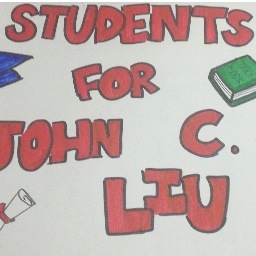 STUDENTS
FOR
JOHN C.
LIU